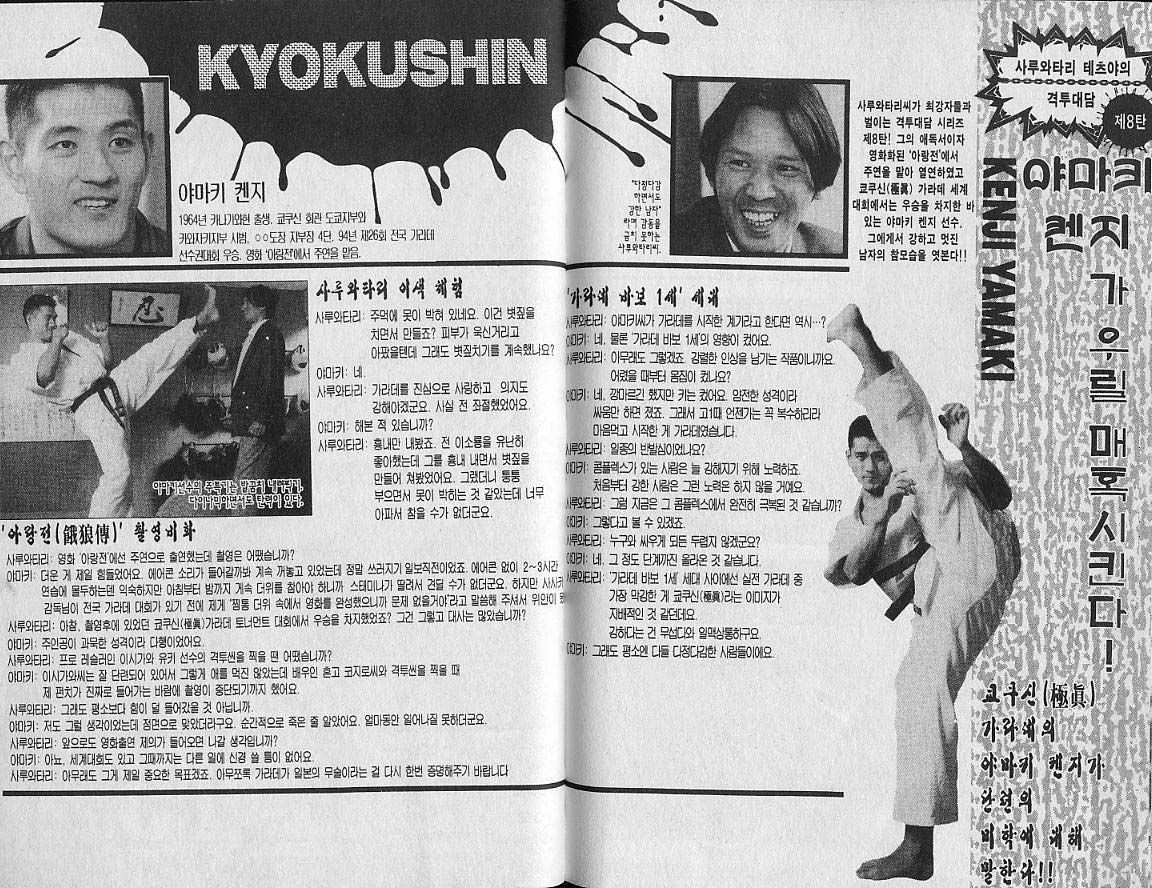 사루와타리 테츠야의
격투대담
제8탄
야마키
켄지
가
우릴
매혹시킨다!
KENJI YAMAKI
사루와타리씨가 최강자들과
벌이는 격투대담 시리즈
제8탄! 그의 애독서이자
영화화된 '아랑전'에서
주연을 맡아 열연하였고
쿄쿠신(極眞) 가라데 세계
대회에서는 우승을 차지한 바
있는 야마키 켄지 선수.
그에게서 강하고 멋진
남자의 참모습을 엿본다!!
쿄쿠신(極眞)
가라데의
야마키 켄지가
단련의
미학에 대해
말한다!!
KYOKUSHIN
"다정다감
하면서도
강한 남자"
라며 감동을
금치 못하는
사루와타리씨.
야마키 켄지
1964년 카나가와현 출생. 쿄쿠신 회관 도쿄지부와
카와사키지부 사범, ○○도장 지부장 4단. 94년 제26회 전국 가라데
선수권대회 우승. 영화 '아랑전'에서 주연을 맡음.
'가라데 바보 1세' 세대
사루와타리: 야마키씨가 가라데를 시작한 계기라고 한다면 역시···?
야마키: 네. 물론 '가라데 바보 1세'의 영향이 컸어요.
사루와타리: 아무래도 그렇겠죠. 강렬한 인상을 남기는 작품이니까요.
어렸을 때부터 몸집이 컸나요?
야마키: 네, 깡마르긴 했지만 키는 컸어요. 얌전한 성격이라
싸움만 하면 졌죠. 그래서 고1때 언젠가는 꼭 복수하리라
마음먹고 시작한 게 가라데였습니다.
사루와타리: 일종의 반발심이었나요?
야마키: 콤플렉스가 있는 사람은 늘 강해지기 위해 노력하죠.
처음부터 강한 사람은 그런 노력은 하지 않을 거예요.
사루와타리: 그럼 지금은 그 콤플렉스에서 완전히 극복된 것 같습니까?
야마키: 그렇다고 볼 수 있겠죠.
사루와타리: 누구와 싸우게 되든 두렵지 않겠군요?
야마키: 네. 그 정도 단계까진 올라온 것 같습니다.
사루와타리: '가라데 바보 1세' 세대 사이에선 실전 가라데 중
가장 막강한 게 쿄쿠신(極眞)라는 이미지가
지배적인 것 같던데요.
강하다는 건 무섭다와 일맥상통하구요.
야마키: 그래도 평소엔 다들 다정다감한 사람들이에요.
忍
야마키선수의 주특기는 발꿈치 내려찍기.
다이나믹하면서도 탄력이 있다.
사루와타리 이색 체험
사루와타리: 주먹에 못이 박혀 있네요. 이건 볏짚을
치면서 만들죠? 피부가 욱신거리고
아팠을텐데 그래도 볏짚치기를 계속했나요?
야마키: 네.
사루와타리: 가라데를 진심으로 사랑하고 의지도
강해야겠군요. 사실 전 좌절했었어요.
야마키: 해본 적 있습니까?
사루와타리: 흉내만 내봤죠. 전 이소룡을 유난히
좋아했는데 그를 흉내 내면서 볏짚을
만들어 쳐봤었어요. 그랬더니 퉁퉁
부으면서 못이 박히는 것 같았는데 너무
아파서 참을 수가 없더군요.
'아랑전(餓狼傳)' 촬영비화
사루와타리: 영화 '아랑전'에선 주연으로 출연했는데 촬영은 어땠습니까?
야마키: 더운 게 제일 힘들었어요. 에어콘 소리가 들어갈까봐 계속 꺼놓고 있었는데 정말 쓰러지기 일보직전이었죠. 에어콘 없이 2~3시간
연습에 몰두하는덴 익숙하지만 아침부터 밤까지 계속 더위를 참아야 하니까 스테미나가 딸려서 견딜 수가 없더군요. 하지만 사사키
감독님이 전국 가라데 대회가 있기 전에 제게 '찜통 더위 속에서 영화를 완성했으니까 문제 없을거야'라고 말씀해 주셔서 위안이
사루와타리: 아참, 촬영후에 있었던 쿄쿠신(極眞)가라데 토너먼트 대회에서 우승을 차지했었죠? 그건 그렇고 대사는 많았습니까?
야마키: 주인공이 과묵한 성격이라 다행이었어요.
사루와타리: 프로 레슬러인 이시가와 유키 선수의 격투씬을 찍을 땐 어땠습니까?
야마키: 이시가와씨는 잘 단련되어 있어서 그렇게 애를 먹진 않았는데 배우인 혼고 코지로씨와 격투씬을 찍을 때
제 펀치가 진짜로 들어가는 바람에 촬영이 중단되기까지 했어요.
사루와타리: 그래도 평소보다 힘이 덜 들어갔을 것 아닙니까.
야마키: 저도 그럴 생각이었는데 정면으로 맞았더라구요. 순간적으로 죽은 줄 알았어요. 얼마동안 일어나질 못하더군요.
사루와타리: 앞으로도 영화출연 제의가 들어오면 나갈 생각입니까?
야마키: 아뇨, 세계대회도 있고 그때까지는 다른 일에 신경 쓸 틈이 없어요.
사루와타리: 아무래도 그게 제일 중요한 목표겠죠. 아무쪼록 가라데가 일본의 무술이라는 걸 다시 한번 증명해주기 바랍니다